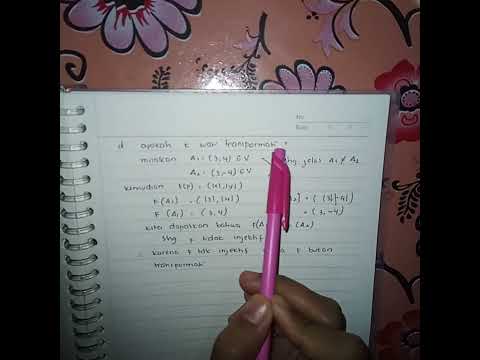 No
Date
d apakah f suatu Transpormasi ?
misalkan A₁ = (3,4) ∈ V shg jelas A₁ ≠ A₂
A₂ = (3,-4) ∈ V
kemudian f(P) = (|x|,|y|)
f(A₁) = (|3|,|4|) = (|3|,|-4|)
f(A₁) = (3,4) = (3,-4)
kita dapatkan bahwa f(A (A₂)
Shg f tidak injektif
karena f tdk injektif f bukan
transpormasi